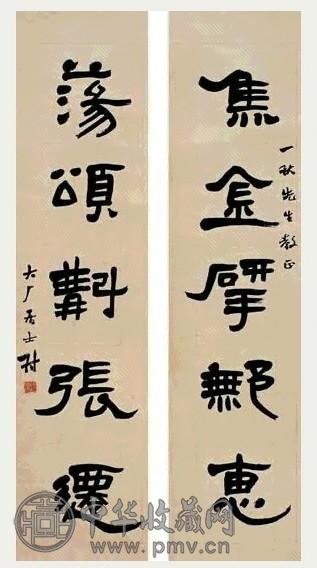 焦金揅鄦惠
一秋先生教正
蕩頌斠張遷
大厂居士
中华收藏网
www.pmv.cn